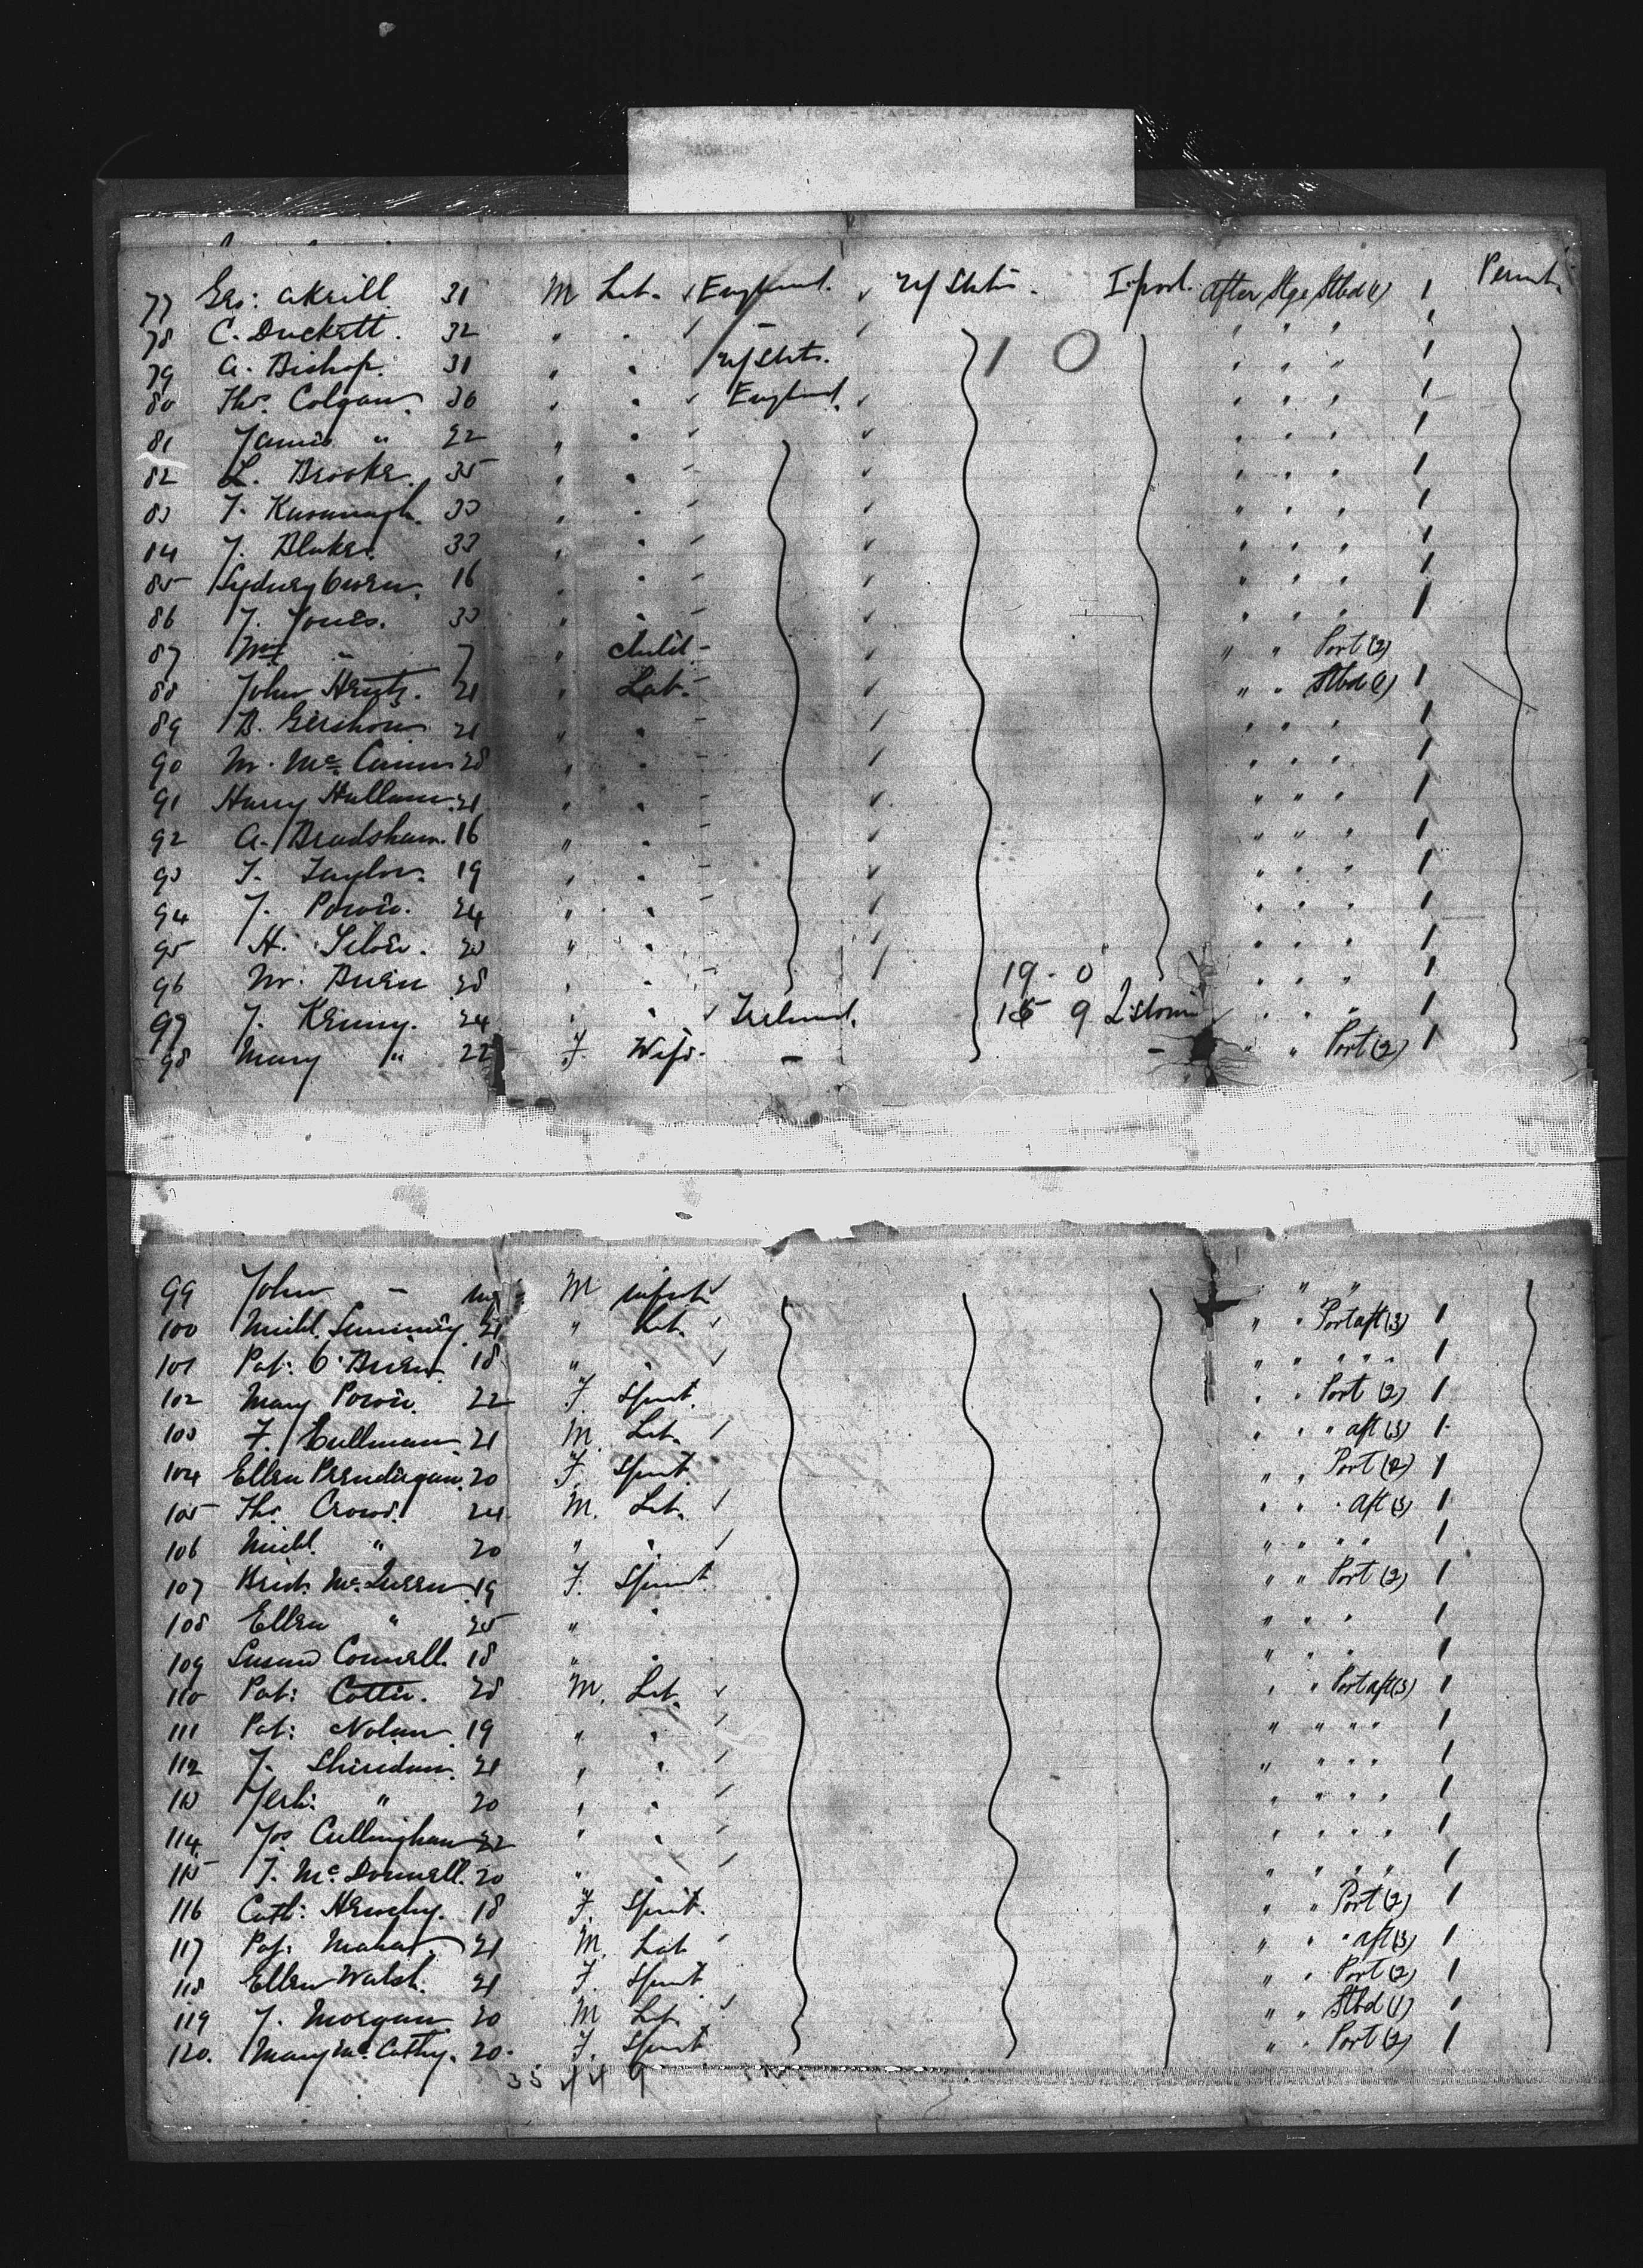 77 Geo: Akrill. 31 M Lab. ✓ England. ✓ U/States. L'pool. After Stge Stbd (1) 1 Permt.
78 C. Duckett. 32 " " ✓ – ✓ " " " 1
79 A. Bishop. 31 " " U/States. 1 0 " " " 1
80 Thos. Colgan. 36 " " ✓ England. ✓ " " " 1
81 James " 22 " " - ✓ " " " 1
82 L. Brooke. 35 " " - ✓ " " " 1
83 T. Kavanagh. 33 " " - ✓ " " " 1
84 J. Blake. 33 " " - ✓ " " " 1
85 Sydney Owen. 16 " " - ✓ " " " 1
86 J. Jones. 33 " " - ✓ " " " 1
87 " 7 " child - ✓ " " Port (2)
88 John 21 " Lab. - ✓ " " Stbd (1) 1
89 B. Gershon 21 " " - ✓ " " " 1
90 M. Mc 28 " " - ✓ " " " 1
91 Harry Hallam. 21 " " - ✓ " " " 1
92 A. Bradshaw. 16 " " - ✓ " " " 1
93 T. Taylor. 19 " " - ✓ " " " 1
94 J. Power. 24 " " - ✓ " " " 1
95 H. Silver. 20 " " - ✓ " " " 1
96 28 " " - ✓ 19 - 0 " " " 1
97 J. Kenny. 24 " " ✓ Ireland. 15 9 " " " 1
98 Mary " 22 F Wife - – – " " Port (2) 1
99 John – M infant ✓ " "
100 Michl. 21 " Lab. ✓ " " Port aft (3) 1
101 Pat: O'Brien 18 " " ✓ " " " " " 1
102 Mary Power. 22 F. Spinst. " " Port (2) 1
103 F. Cullinan. 21 M. Lab. ✓ " " " aft (3) 1
104 Ellen Prendergan. 20 F. Spinst. " " Port (2) 1
105 Thos. Crowe. 24 M. Lab. ✓ " " " aft (3) 1
106 Michl. " 20 " " ✓ " " " " 1
107 Brid. 19 F. Spinst. " " Port (2) 1
108 Ellen " 25 " " " " " 1
109 Susan Connell. 18 " " " " " 1
110 Pat: Cotter. 28 M. Lab. ✓ " " Port aft (3) 1
111 Pat: Nolan. 19 " " ✓ " " " " 1
112 J. Sheridan. 21 " " ✓ " " " " 1
113 " 20 " " ✓ " " " " 1
114 Jos Cullinghan 22 " " ✓ " " " " 1
115 J. McDonnell. 20 " " ✓ " " " " 1
116 Cath: 18 F. Spinst. " " Port (2) 1
117 Pat: Mahar. 21 M. Lab ✓ " " " aft (3) 1
118 Ellen Walsh. 21 F. Spinst " " Port (2) 1
119 J. Morgan 20 M Lab. ✓ " " Stbd (1) 1
120. Mary McCathy. 20. F. Spinst " " Port (2) 1
35 44 9